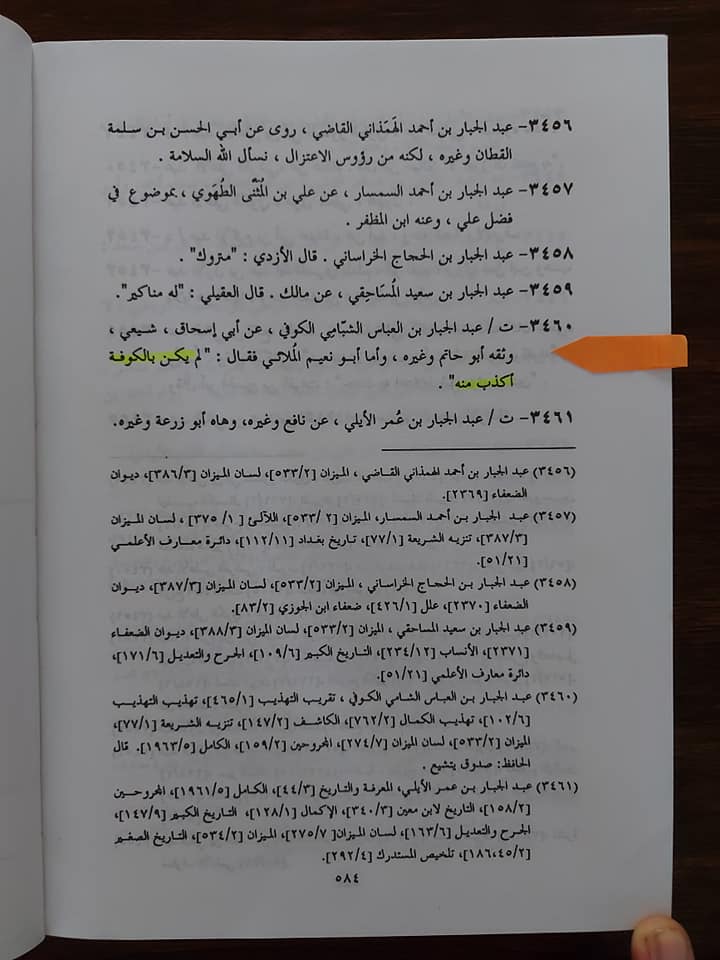 ٣٤٥٦- عبد الجبار بن أحمد الهَمَذاني القاضي ، روى عن أبي الحسن بن سلمة
القطان وغيره ، لكنه من رؤوس الاعتزال ، نسأل الله السلامة .
٣٤٥٧- عبد الجبار بن أحمد السمسار ، عن علي بن المُثَنَّى الطُهَوي ، بموضوع في
فضل علي ، وعنه ابن المظفر .
٣٤٥٨- عبد الجبار بن الحجاج الخراساني . قال الأزدي : "متروك" .
٣٤٥٩- عبد الجبار بن سعيد المُسَاحِقي ، عن مالك . قال العقيلي : "له مناكير".
٣٤٦٠- ت / عبد الجبار بن العباس الشبّامِي الكوفي ، عن أبي إسحاق ، شيعي ،
وثقه أبو حاتم وغيره ، وأما أبو نعيم المُلائي فقال : "لم يكن بالكوفة
أكذب منه" .
٣٤٦١- ت / عبد الجبار بن عُمر الأيلي ، عن نافع وغيره، وهاه أبو زرعة وغيره.
(٣٤٥٦) عبد الجبار بن أحمد الهمذاني القاضي ، الميزان [٥٣٣/٢]، لسان الميزان [٣٨٦/٣]، ديوان
الضعفاء [٢٣٦٩].
(٣٤٥٧) عبد الجبار بن أحمد السمسار، الميزان [٢/ ٥٣٣]، اللآلئ [١/ ٣٧٥] ، لسان الميزان
[٣٨٧/٣]، تنزيه الشريعة [٧٧/١]، تاريخ بغداد [١١٢/١١]، دائرة معارف الأعلمي
[٥١/٢١].
(٣٤٥٨) عبد الجبار بن الحجاج الخراساني ، الميزان [٥٣٣/٢]، لسان الميزان [٣٨٧/٣]، ديوان
الضعفاء [٢٣٧٠]، علل [٤٢٦/١]، ضعفاء ابن الجوزي [٨٣/٢].
(٣٤٥٩) عبد الجبار بن سعيد المساحقي ، الميزان [٥٣٣/٢]، لسان الميزان [٣٨٨/٣]، ديوان الضعفاء
[٢٣٧١]، الأنساب [٢٣٤/١٢]، التاريخ الكبير [١٠٩/٦]، الجرح والتعديل [١٧١/٦]،
دائرة معارف الأعلمي [٥١/٢١].
(٣٤٦٠) عبد الجبار بن العباس الشامي الكوفي ، تقريب التهذيب [٤٦٥/١]، تهذيب التهذيب
[١٠٢/٦]، تهذيب الكمال [٧٦٢/٢]، الكاشف [١٤٧/٢]، تنزيه الشريعة [٧٧/١]،
الميزان [٥٣٣/٢]، لسان الميزان [٢٧٤/٧]، المجروحين [١٥٩/٢]، الكامل [١٩٦٣/٥]. قال
الحافظ: صدوق يتشيع .
(٣٤٦١) عبد الجبار بن عمر الأيلي، المعرفة والتاريخ [٤٤/٣]، الكامل [١٩٦١/٥]، المجروحين
[١٥٨/٢]، التاريخ لابن معين [٣٤٠/٣]، الإكمال [١٢٨/١]، التاريخ الكبير [١٤٧/٩]،
الجرح والتعديل [١٦٣/٦]، لسان الميزان[ ٢٧٥/٧]، الميزان [٥٣٤/٢]، التاريخ الصغير
[١٨٦،٤٥/٢]، تلخيص المستدرك [٢٩٢/٤].
٥٨٤